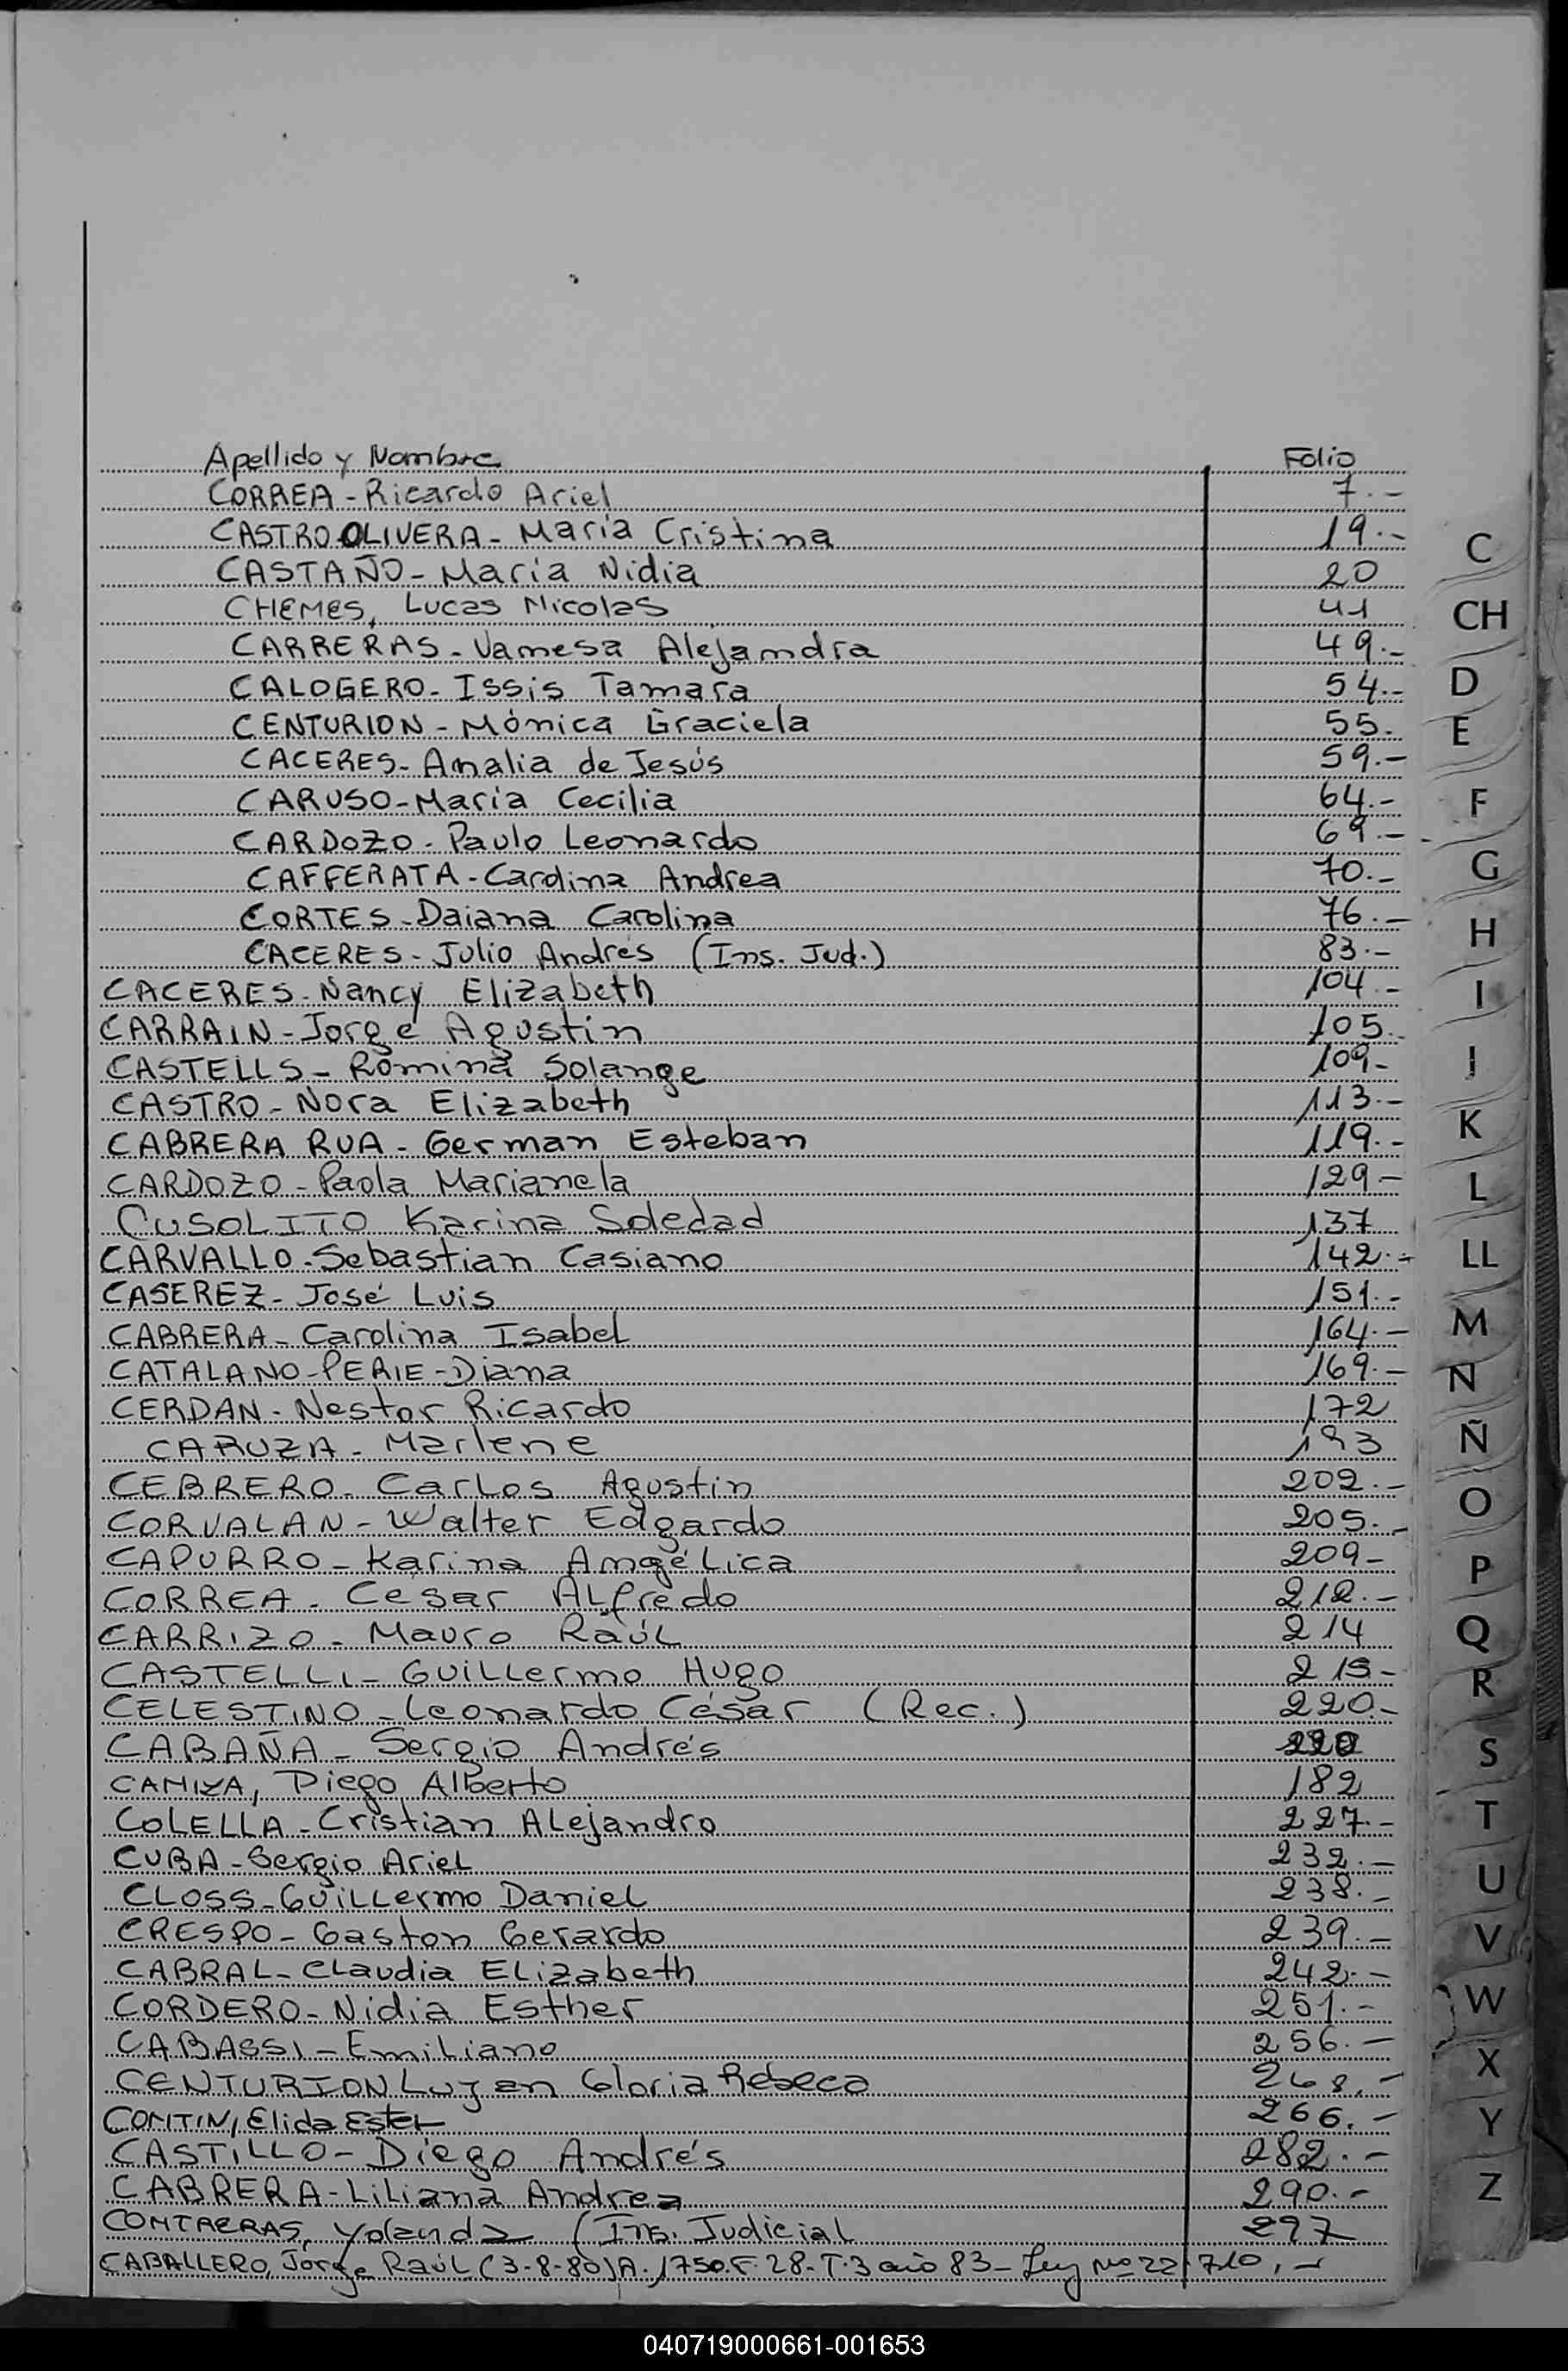 Apellido y Nombre Folio
CORREA - Ricardo Ariel 7.-
CASTRO OLIVERA - María Cristina 19.-
CASTAÑO - María Nidia 20
CHEMES, Lucas Nicolas 41
CARRERAS - Vanesa Alejandra 49.-
CALOGERO - Issis Tamara 54.-
CENTURION - Mónica Graciela 55.
CACERES - Analia de Jesús 59.-
CARUSO - María Cecilia 64.-
CARDOZO - Paulo Leonardo 69.-
CAFFERATA - Carolina Andrea 70.-
CORTES - Daiana Carolina 76.-
CACERES - Julio Andrés (Ins. Jud.) 83.-
CACERES - Nancy Elizabeth 104.-
CARRAIN - Jorge Agustin 105.-
CASTELLS - Romina Solange 109-
CASTRO - Nora Elizabeth 113.-
CABRERA RUA - German Esteban 119.-
CARDOZO - Paola Marianela 129-
CUSOLITO Karina Soledad 137
CARVALLO - Sebastian Casiano 142.-
CASEREZ - José Luis 151.-
CABRERA - Carolina Isabel 164.-
CATALANO - PERIE - Diana 169.-
CERDAN - Nestor Ricardo 172
CARUZA - Marlene 193
CEBRERO - Carlos Agustin 202.-
CORVALAN - Walter Edgardo 205.-
CAPURRO - Karina Angélica 209-
CORREA - César Alfredo 212.-
CARRIZO - Mauro Raúl 214
CASTELLI - Guillermo Hugo 215-
CELESTINO - Leonardo César (Rec.) 220.-
CABAÑA - Sergio Andrés
CAMIZA, Diego Alberto 182
COLELLA - Cristian Alejandro 227.-
CUBA - Sergio Ariel 232.-
CLOSS - Guillermo Daniel 238.-
CRESPO - Gaston Gerardo 239.-
CABRAL - Claudia Elizabeth 242.-
CORDERO - Nidia Esther 251.-
CABASSI - Emiliano 256.-
CENTURION Lujan Gloria Rebeca 268.-
CONTIN, Elida Ester 266.-
CASTILLO - Diego Andrés 282.-
CABRERA - Liliana Andrea 290.-
CONTRERAS, Yolanda (Ins. Judicial 297
CABALLERO, Jorge Raúl (3-8-80) A. 1750. F. 28. T. 3 año 83 - Ley Nº 22710.-
C
CH
D
E
F
G
H
I
J
K
L
LL
M
N
Ñ
O
P
Q
R
S
T
U
V
W
X
Y
Z
040719000661-001653